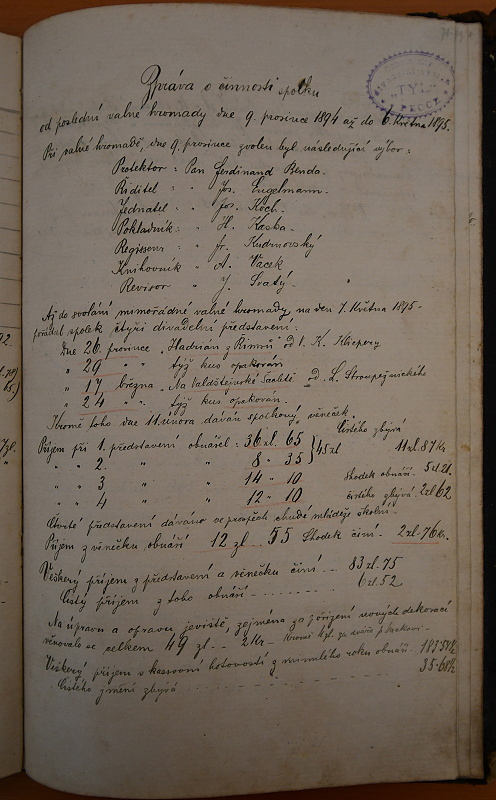 Zpráva o činnosti spolku
od poslední valné hromady dne 9. prosince 1894 až do 6. Května 1895.
Při valné hromadě, dne 9. prosince zvolen byl následující výbor:
Protektor: Pan Ferdinand Benda.
Řiditel " Jos. Engelmann.
Jednatel " Jos. Koch.
Pokladník: " H. Kaska.
Regisseur " Fr. Kudrnovský
Knihovník " A. Vacek
Revisor " J. Svatý.
Až do svolání mimořádné valné hromady na den 7. Května 1895
pořádal spolek čtyři divadelní představení:
Dne 26. prosince "Hadrián z Římsů" od V. K. Klicpery
" 29 " " týž kus opakován
" 17 března "Na Valdštejnské šachtě" od L. Stroupežnického
" 24 " týž kus opakován.
Kromě toho dne 11. února dáván spolkový věneček.
Čistého zbývá
Příjem při 1. představení obnášel: 36 zl. 65 } 45 zl 11 zl. 87 Kr
" " 2. " " 8 " 35
" " 3 " " 14 " 10 Shodek obnáší. 5 zl 21.
" " 4 " " 12 " 10 čistého zbývá. 2 zl 62
Čtvrté představení dáváno ve prospěch chudé mládeže školní.
Příjem z věnečku obnáší 12 zl. 55 Shodek činí. 2 zl. 76 Kr.
Veškerý příjem z představení a věnečku činí 83 zl. 75
Čistý příjem z toho obnáší 6 zl. 52
Na úpravu a opravu jeviště, zejména za zřízení nových dekorací
věnovalo se celkem 49 zl. 2 Kr
Veškerý příjem s kassovní hotovostí z minulého roku obnáší.
Čistého jmění zbývá